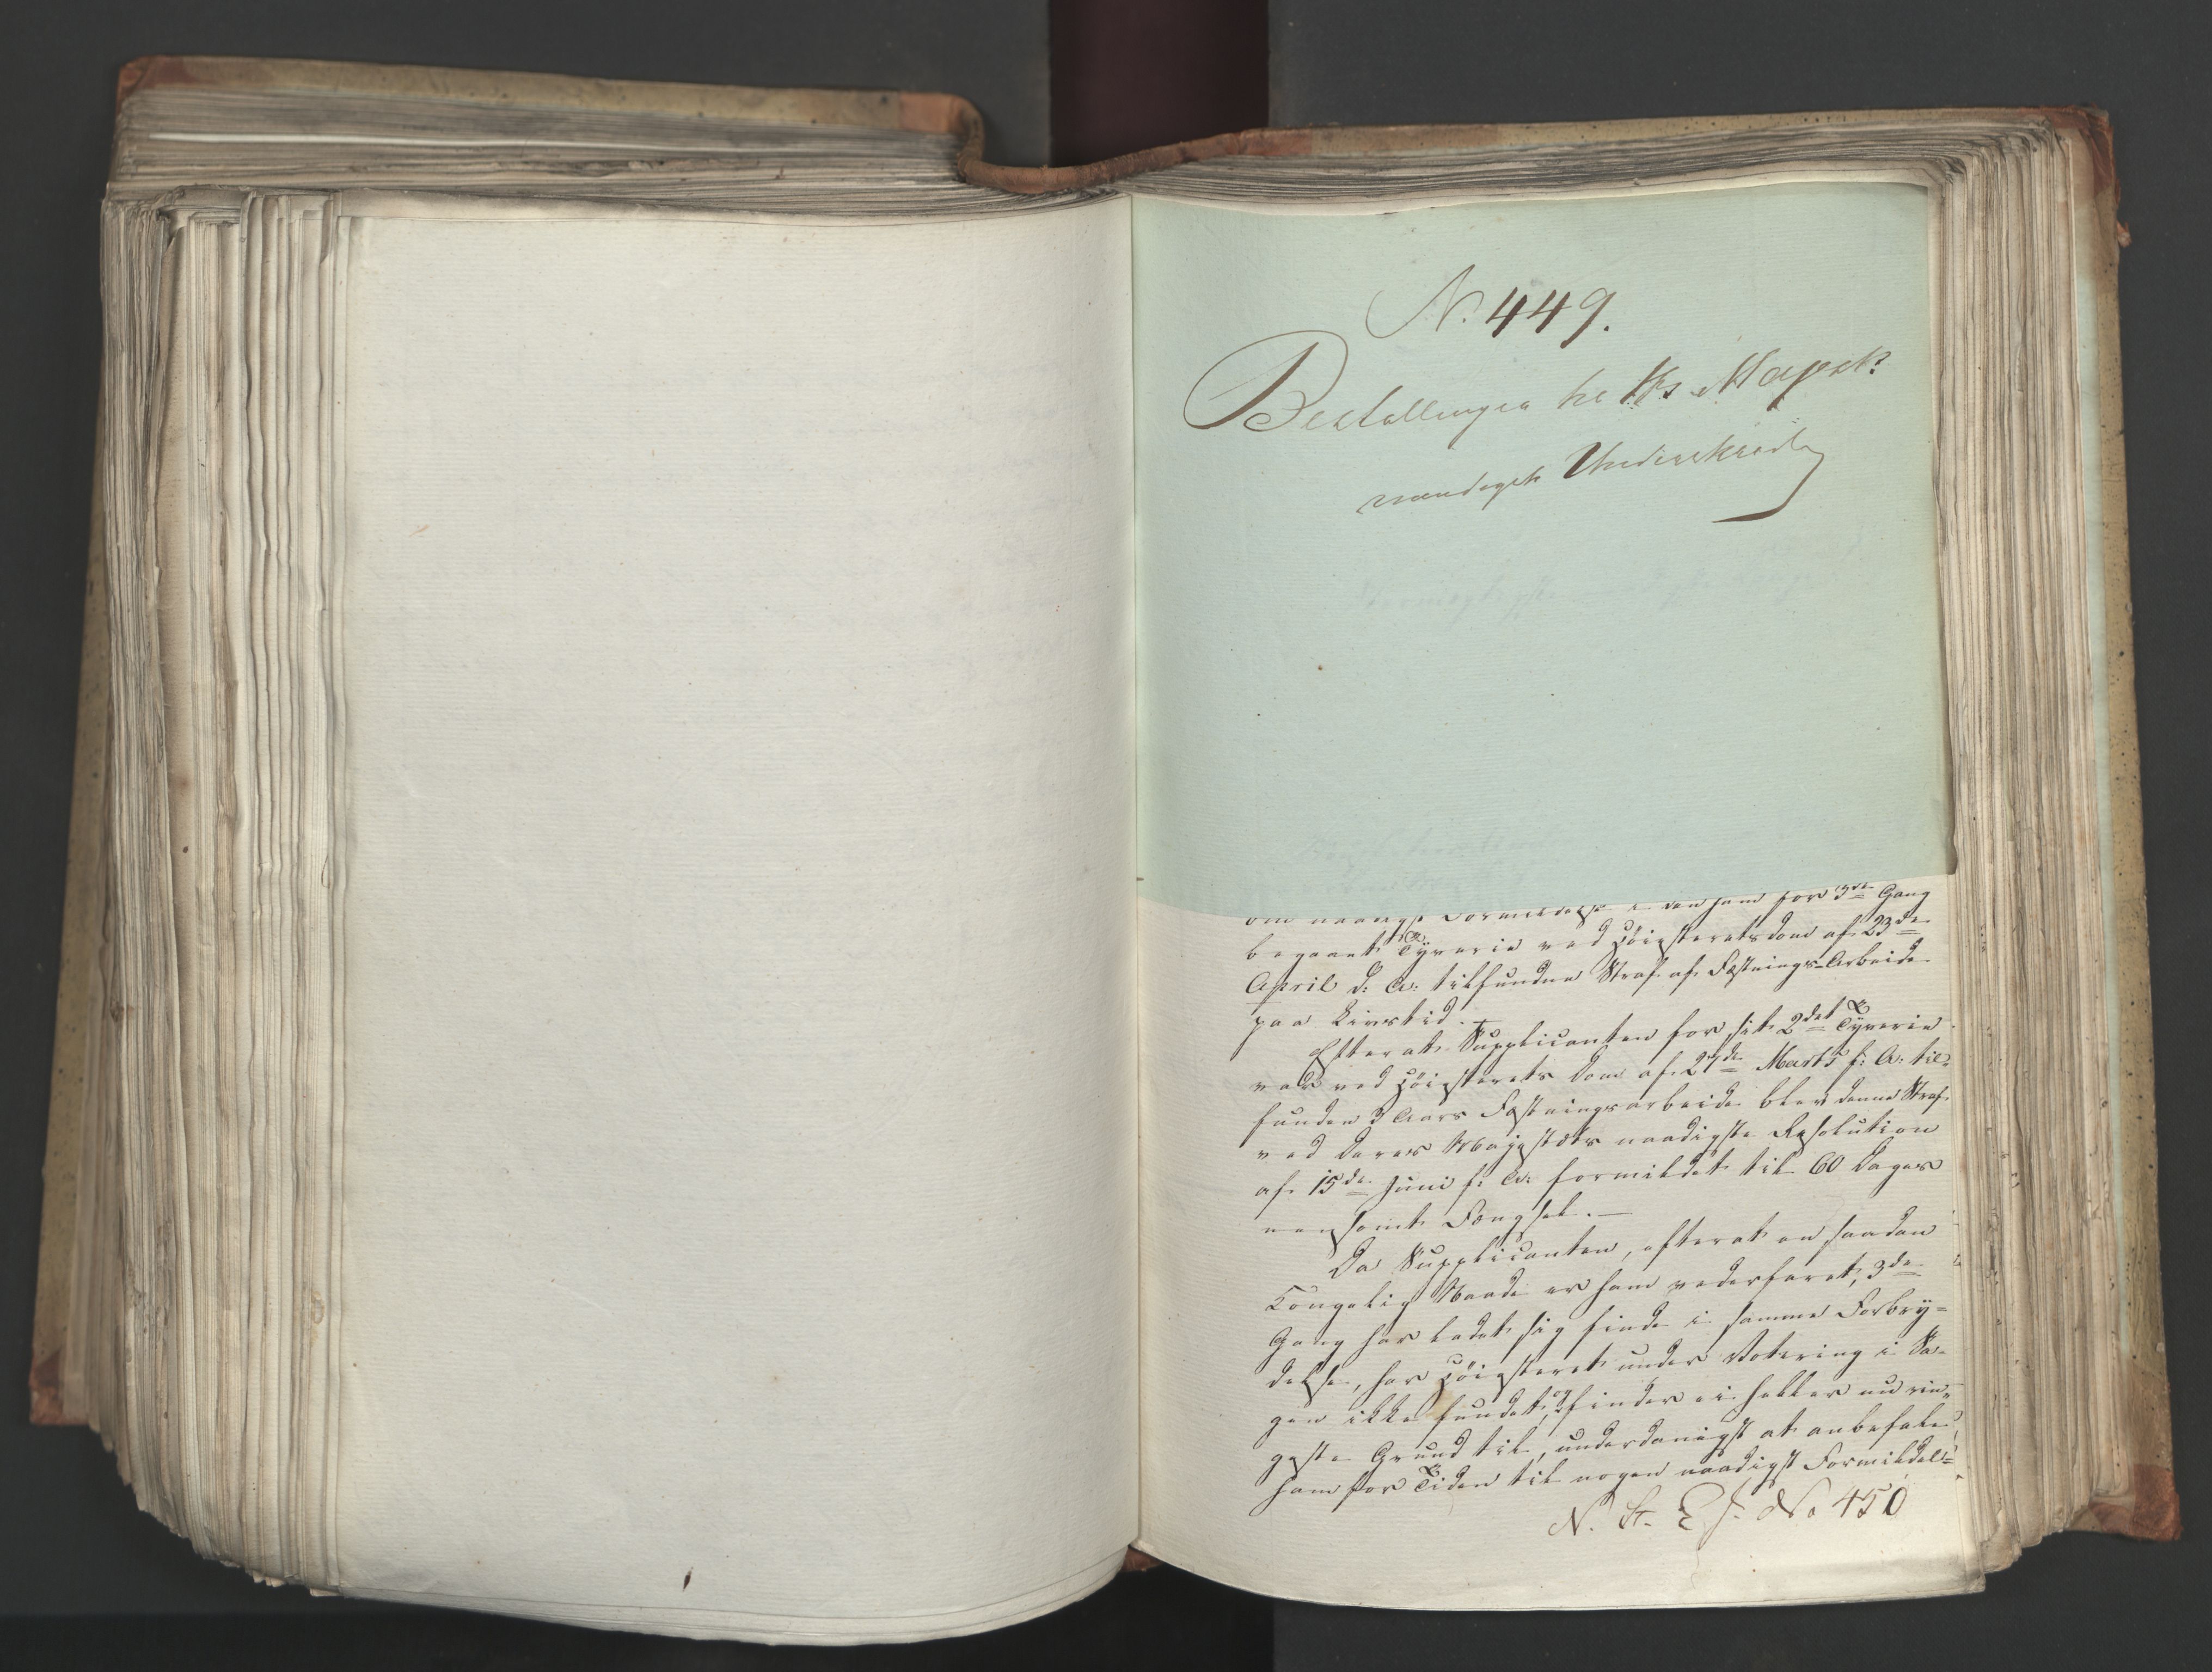 N. 449.
Bestallinger til Hs Majest:
naadigste Underskrift
om naadigst Formildelse i den ham for 3de Gang
begaaet Tyverie ved Höiesteretsdom af 23de
April d: A: tilfundne Straf af Fæstnings-Arbeide
paa Livstid. –
Efterat Supplicanten for sit 2det Tyverie
var ved Höiesterets Dom af 27de Marts f: A: til-
funden 3 Aars Fæstningsarbeide blev denne Straf
ved Deres Majestæts naadigste Resolution
af 15de Juni f: A: formildet til 60 Dages
eensomt Fængsel. –
Da Supplicanten, efterat en saadan
Kongelig Naade er ham vederfaret, 3de
Gang har ladet sig finde i samme Forbry-
delse, har Höiesteret under Votering i Sa-
gen ikke fundet, og finder ei heller nu rin-
geste Grund til, underdanigst at anbefale
ham for Tiden til nogen naadigst Formildel-
N. St. E J. No 450